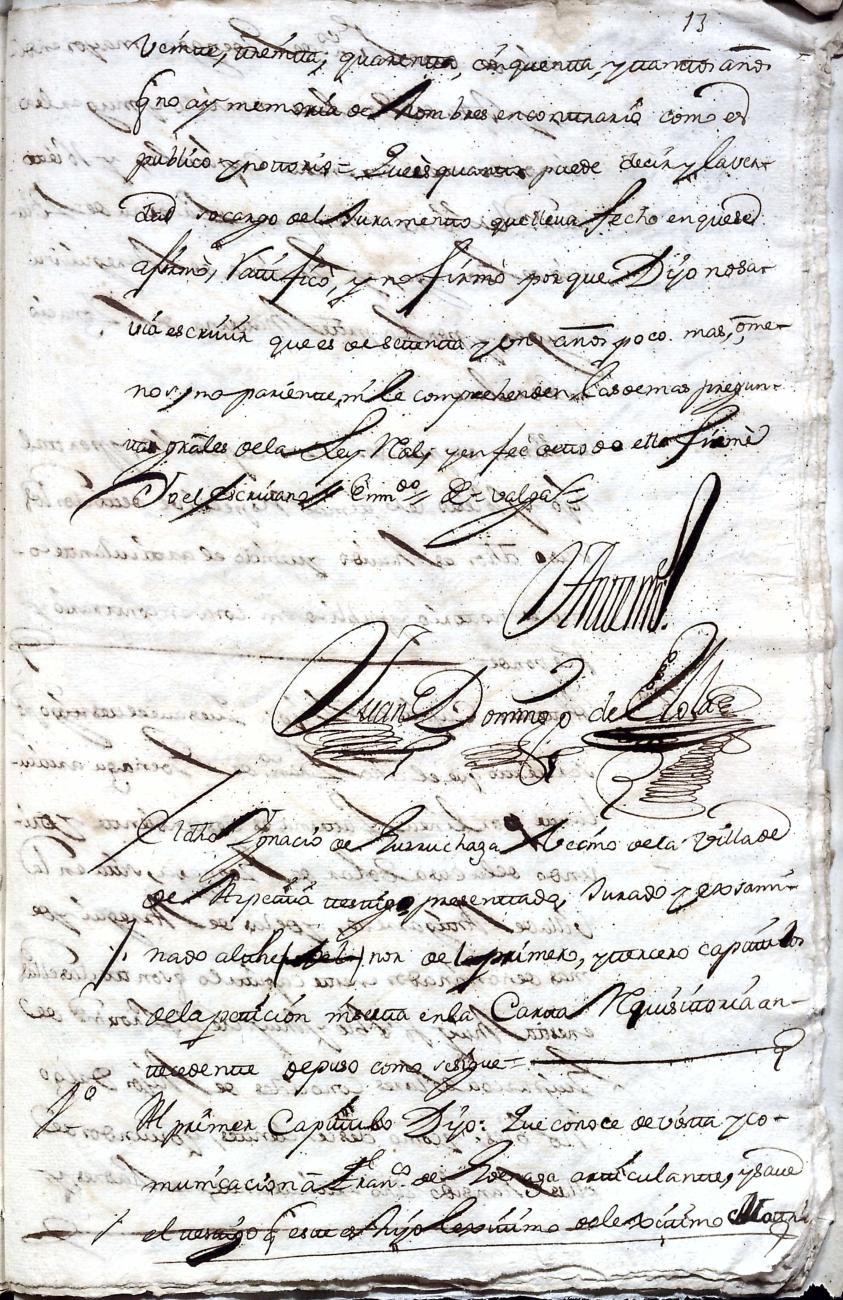 13
Veinte, treinta, quarenta, cinquenta, y tantos años
q no ay memoria de hombres en contrario como es
publico y nottorio = Que es quanto puede decir y la ver-
dad so cargo del Juramento que lleva fecho en que se
afirmò, Ratificò, y no firmò porque Dijo no sa-
via escrivir que es de settenta y un años poco mas, ò me-
nos, y no pariente, ni le comprehenden las demas pregun-
tas grâles de la Ley Rl, y en fee de todo ello firmè
Yo el Escrivano // Enmdo =
Antemi
Juan Domingo de
El dho Ignacio de Gurruchaga Vecino de la Villa de
de Azpeitia testigo presentado, Jurado y exsami-
nado al the nor de la primero, y tercero capitulos
de la peticion inserta en la Carta Requisitoria an-
tecedente depuso como se sigue =
1º Al primer Capitulo Dijo: Que conoce de vista y co-
municacion a Franco. de articulante, y save
el testigo q este es hijo lexitimo de lexitimo Matri-